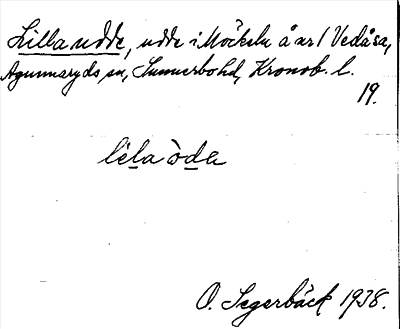 Lilla udde, udde i Möckeln å ar 1 Vedåsa,
Agunnaryds sn, Sunnerbo hd, Kronob. l.
19.
lela òde
O. Segerbäck 1938.